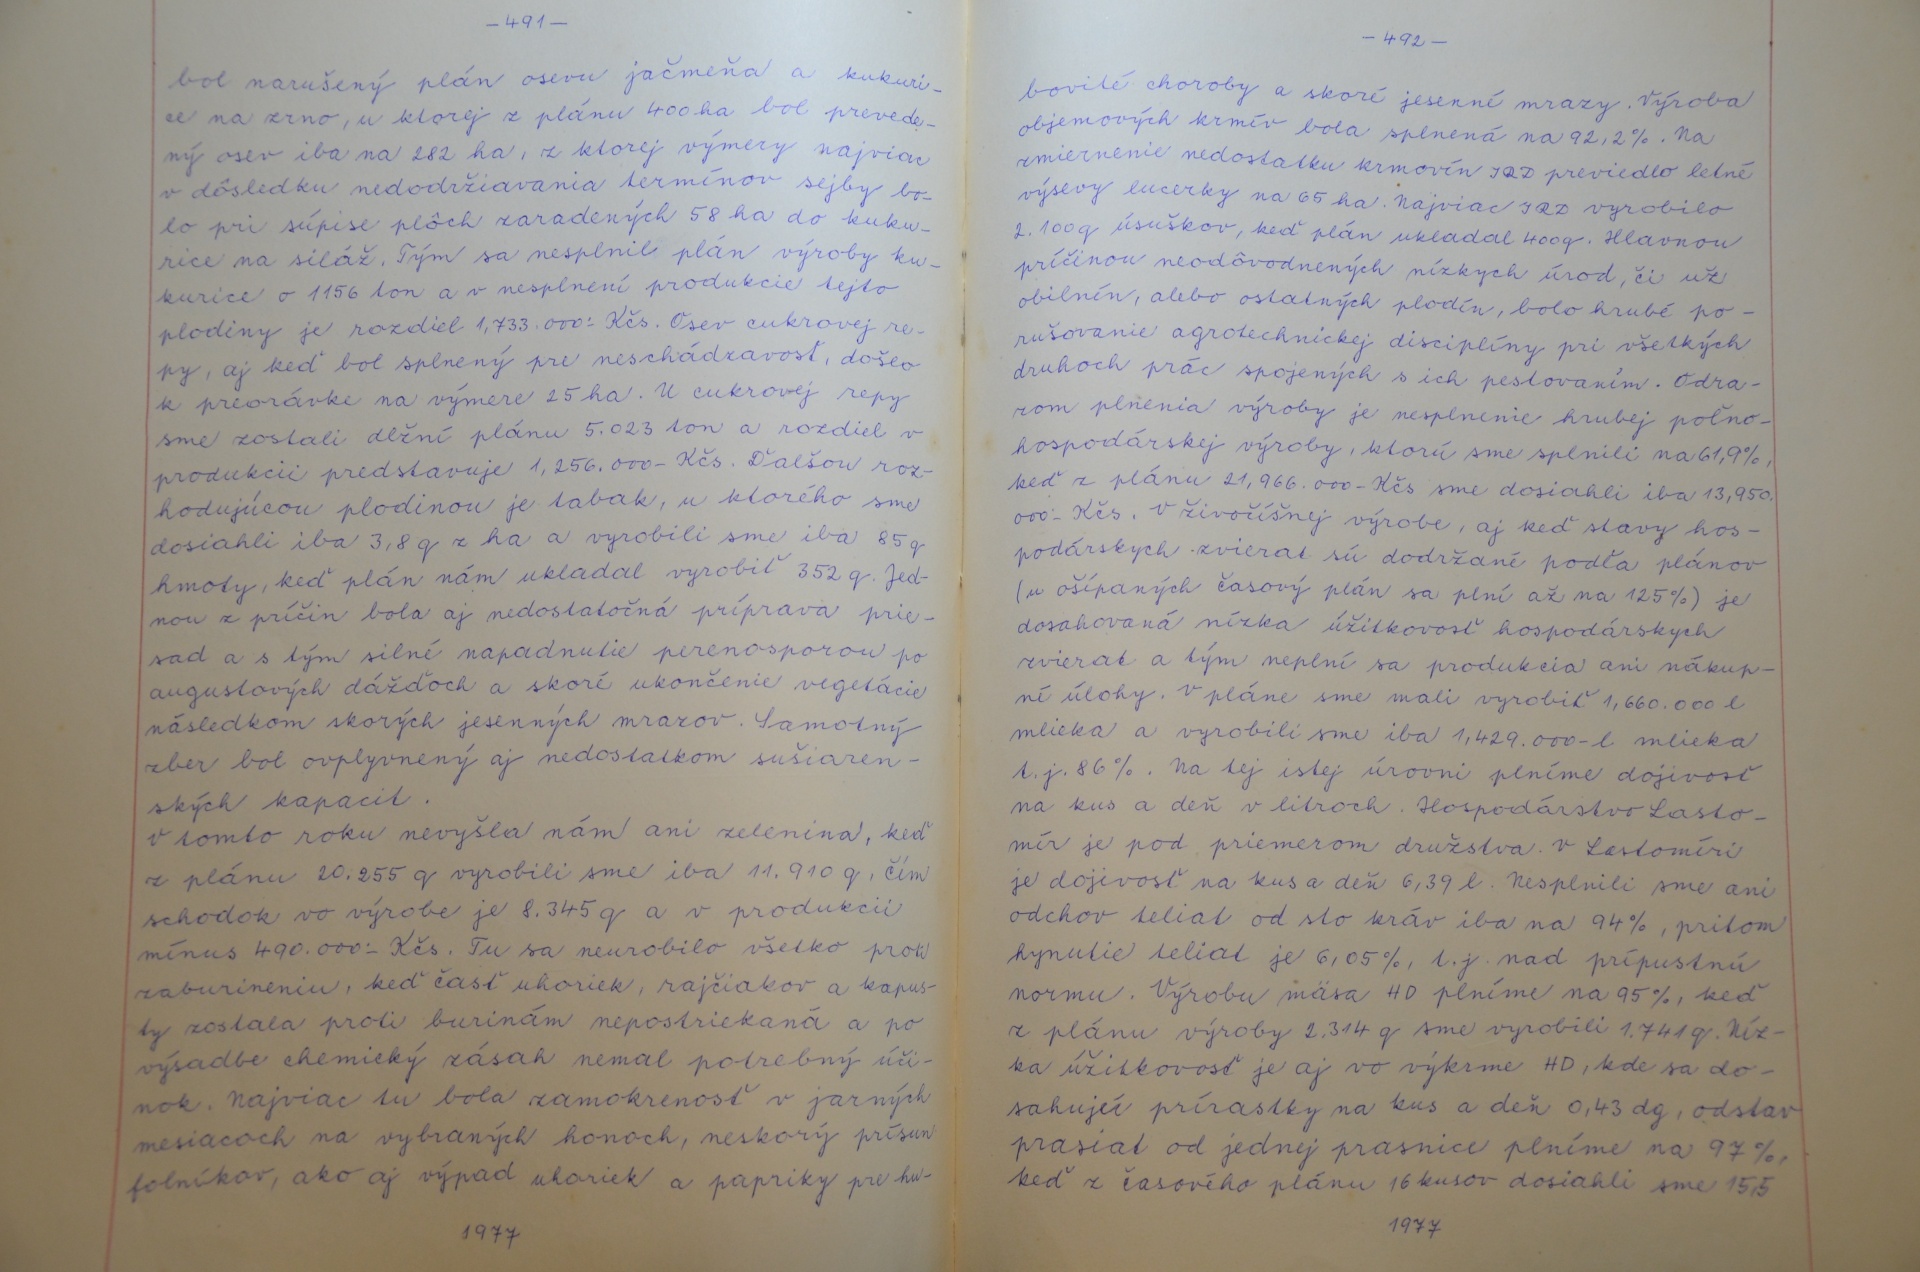 – 491 –
bol narušený plán osevu jačmeňa a kukuri-
ce na zrno, u ktorej z plánu 400 ha bol prevede-
ný osev iba na 282 ha, z ktorej výmery najviac
v dôsledku nedodržiavania termínov sejby bo-
lo pri súpise plôch zaradených 58 ha do kuku-
rice na siláž. Tým sa nesplnil plán výroby ku-
kurice o 1156 ton a v nesplnení produkcie tejto
plodiny je rozdiel 1,733.000.- Kčs. Osev cukrovej re-
py, aj keď bol splnený pre neschádzavosť, došlo
k preorávke na výmere 25 ha. U cukrovej repy
sme zostali dlžní plánu 5.023 ton a rozdiel v
produkcii predstavuje 1,256.000- Kčs. Ďalšou roz-
hodujúcou plodinou je tabak, u ktorého sme
dosiahli iba 3,8 q z ha a vyrobili sme iba 85 q
hmoty, keď plán nám ukladal vyrobiť 352 q. Jed-
nou z príčin bola aj nedostatočná príprava prie-
sad a s tým silné napadnutie perenosporou po
augustových dážďoch a skoré ukončenie vegetácie
následkom skorých jesenných mrazov. Samotný
zber bol ovplyvnený aj nedostatkom sušiaren-
ských kapacit.
V tomto roku nevyšla nám ani zelenina, keď
z plánu 20.255 q vyrobili sme iba 11.910 q, čím
schodok vo výrobe je 8.345 q a v produkcii
mínus 490.000.- Kčs. Tu sa neurobilo všetko proti
zaburineniu, keď časť uhoriek, rajčiakov a kapus-
ty zostala proti burinám nepostriekaná a po
výsadbe chemický zásah nemal potrebný úči-
nok. Najviac tu bola zamokrenosť v jarných
mesiacoch na vybraných honoch, neskorý prísun
folníkov, ako aj výpad uhoriek a papriky pre hu-
1977
– 492 –
bovité choroby a skoré jesenné mrazy. Výroba
objemových krmív bola splnená na 92,2%. Na
zmiernenie nedostatku krmovín JRD previedlo letné
výsevy lucerky na 65 ha. Najviac JRD vyrobilo
2.100q úsuškov, keď plán ukladal 400q. Hlavnou
príčinou neodôvodnených nízkych úrod, či už
obilnín, alebo ostatných plodín, bolo hrubé po-
rušovanie agrotechnickej disciplíny pri všetkých
druhoch prác spojených s ich pestovaním. Odra-
zom plnenia výroby je nesplnenie hrubej poľno-
hospodárskej výroby, ktorú sme splnili na 61,9%,
keď z plánu 21,966.000- Kčs sme dosiahli iba 13,950.
000.- Kčs. V živočíšnej výrobe, aj keď stavy hos-
podárskych zvierat sú dodržané podľa plánov
(u ošípaných časový plán sa plní až na 125%) je
dosahovaná nízka úžitkovosť hospodárskych
zvierat a tým neplní sa produkcia ani nákup-
né úlohy. V pláne sme mali vyrobiť 1,660.000 l
mlieka a vyrobili sme iba 1,429.000-l mlieka
t.j. 86%. Na tej istej úrovni plníme dojivosť
na kus a deň v litroch. Hospodárstvo Lasto-
mír je pod priemerom družstva. V Lastomíri
je dojivosť na kus a deň 6,39 l. Nesplnili sme ani
odchov teliat od sto kráv iba na 94%, pritom
hynutie teliat je 6,05%, t.j. nad prípustnú
normu. Výrobu mäsa HD plníme na 95%, keď
z plánu výroby 2.314 q sme vyrobili 1.741 q. Níz-
ka úžitkovosť je aj vo výkrme HD, kde sa do-
sahujeí prírastky na kus a deň 0,43 dg, odstav
prasiat od jednej prasnice plníme na 97%,
keď z časového plánu 16 kusov dosiahli sme 15,5
1977